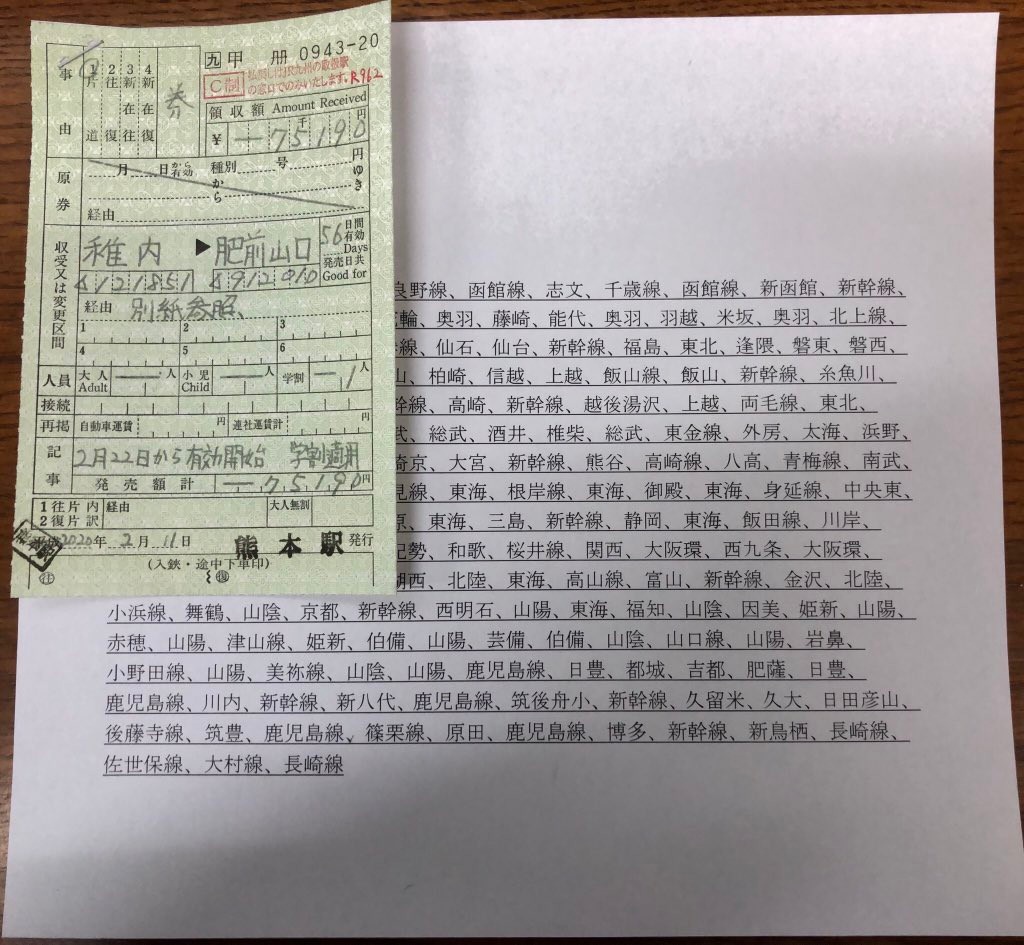 事由
1片道
2往復
3新在往
4新在復
券
九 甲 册 0943-20
C制 払戻しはJR九州の取扱駅
の窓口でのみいたします。R962
領収額 Amount Received
¥ 一75190円
原券
月 日から有効 種別 号 円
から ゆき
経由
収受又は変更区間
稚内 ▶ 肥前山口
56日間有効 Days
発売日共 Good for
経由 別紙参照、
1 2 3
4 5 6
人員 大人 Adult 人 小児 Child 人 学割 一1人
接続
再掲 自動車運賃 円 連社運賃計 円
記事 2月22日から有効開始 学割適用
発売額計 一75190円
1往片 内
2復片 訳
経由 大人無割
2020年 2月 11日 熊本駅 発行
(入鋏・途中下車印)
良野線、函館線、志文、千歳線、函館線、新函館、新幹線、
輪、奥羽、藤崎、能代、奥羽、羽越、米坂、奥羽、北上線、
線、仙石、仙台、新幹線、福島、東北、逢隈、磐東、磐西、
山、柏崎、信越、上越、飯山線、飯山、新幹線、糸魚川、
幹線、高崎、新幹線、越後湯沢、上越、両毛線、東北、
武、総武、酒井、椎柴、総武、東金線、外房、太海、浜野、
埼京、大宮、新幹線、熊谷、高崎線、八高、青梅線、南武、
見線、東海、根岸線、東海、御殿、東海、身延線、中央東、
原、東海、三島、新幹線、静岡、東海、飯田線、川岸、
紀勢、和歌、桜井線、関西、大阪環、西九条、大阪環、
湖西、北陸、東海、高山線、富山、新幹線、金沢、北陸、
小浜線、舞鶴、山陰、京都、新幹線、西明石、山陽、東海、福知、山陰、因美、姫新、山陽、
赤穂、山陽、津山線、姫新、伯備、山陽、芸備、伯備、山陰、山口線、山陽、岩鼻、
小野田線、山陽、美祢線、山陰、山陽、鹿児島線、日豊、都城、吉都、肥薩、日豊、
鹿児島線、川内、新幹線、新八代、鹿児島線、筑後舟小、新幹線、久留米、久大、日田彦山、
後藤寺線、筑豊、鹿児島線、篠栗線、原田、鹿児島線、博多、新幹線、新鳥栖、長崎線、
佐世保線、大村線、長崎線